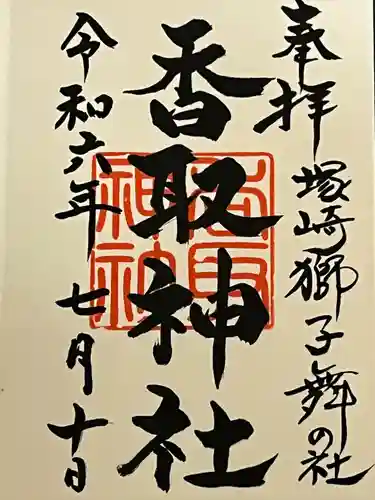 奉拝 塚崎獅子舞の社
香取神社
香取神社
令和六年 七月十日